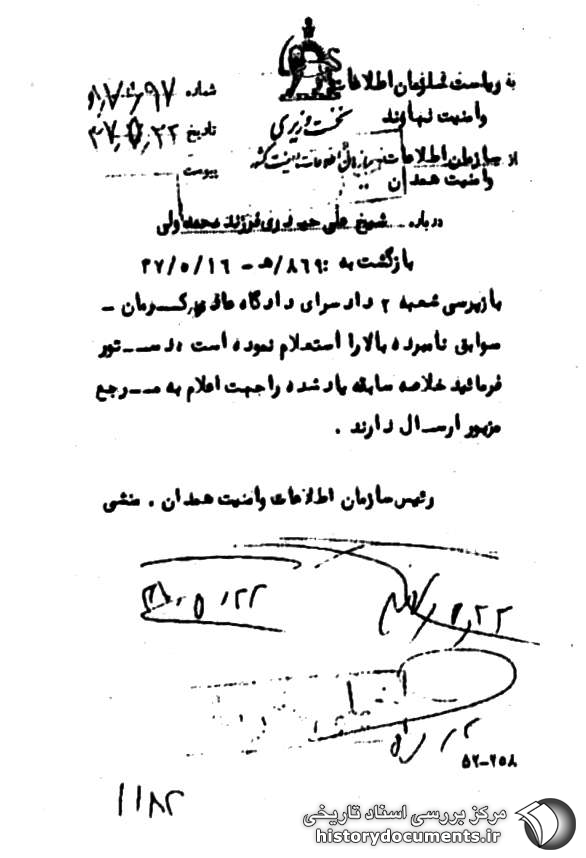 به ریاست سازمان اطلاعات
وامنیت نهاوند
شماره
نخست وزیری
تاریخ ۳۷/۵/۲۲
از سازمان اطلاعات
وامنیت همدان
سازمان اطلاعات و امنیت کشور
پیوست
درباره شیخ علی حیدری فرزند محمدولی
بازگشت به : ۸۶۹/هـ - ۳۷/۵/۱۶
بازپرسی شعبه ۲ دادسرای دادگاه عادی کرمان -
سوابق نامبرده بالا را استعلام نموده است . دستور
فرمائید خلاصه سابقه یاد شده را جهت اعلام به مرجع
مزبور ارسال دارند .
رئیس سازمان اطلاعات وامنیت همدان . منشی
۵/۲۲
۵/۲۳
۵۲-۲۵۸
۱۱۸۲
مرکز بررسی اسناد تاریخی
historydocuments.ir